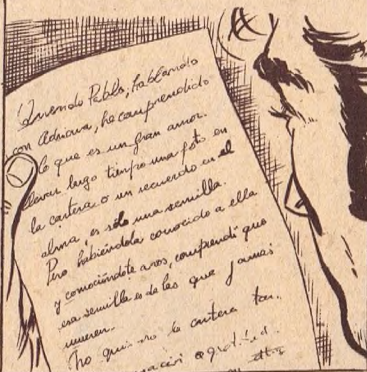 Querido Pablo, hablando
con Adriana, he comprendido
lo que es un gran amor.
llevar largo tiempo una foto en
la cartera o un recuerdo en el
alma es sólo una semilla.
Pero habiéndola conocido a ella
y conociéndote a vos, comprendí que
esa semilla es de las que jamás
mueren.
no la cartera